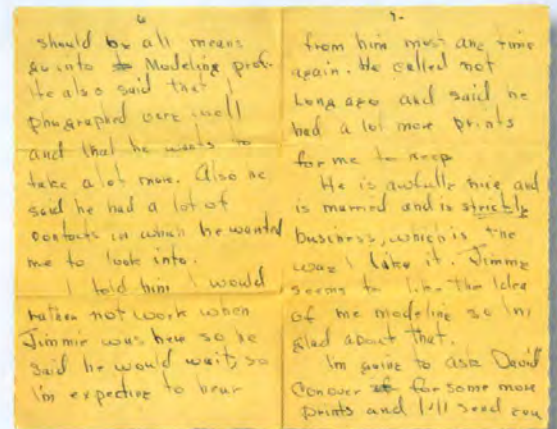 6
should by all means
go into Modeling prof.
He also said that I
phographed very well
and that he wants to
take a lot more. Also he
said he had a lot of
contacts in which he wanted
me to look into.
I told him I would
rather not work when
Jimmie was here so he
said he would wait, so
I'm expecting to hear
7-
from him most any time
again. He called not
long ago and said he
had a lot more prints
for me to keep
He is awfully nice and
is married and is strictly
business, which is the
way I like it. Jimmy
seems to like the idea
of me modeling so I'm
glad about that.
I'm going to ask David
Conover for some more
prints and I'll send you